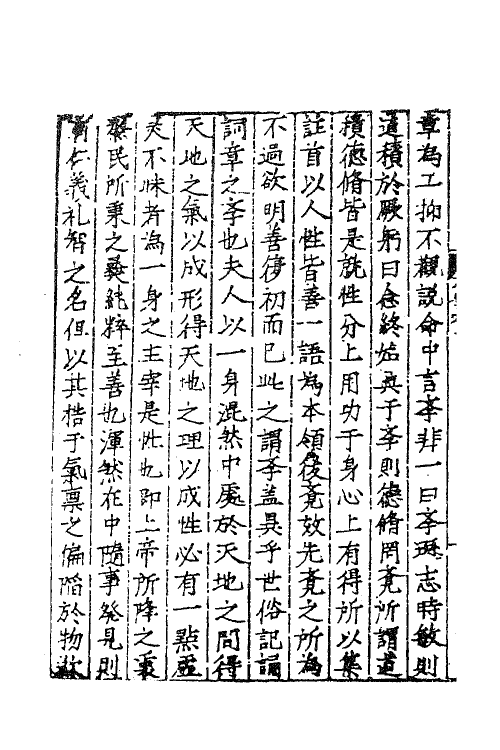 章為工抑不觀説命中言斈非一曰斈遜志時敏則
道積於厥躬曰念終始典于斈則德脩罔覺所謂道
積德脩皆是就性分上用功于身心上有得所以集
註首以人性皆善一語為本領後覺效先覺之所為
不過欲明善復初而已此之謂斈盖異乎世俗記誦
詞章之斈也夫人以一身混然中處於天地之間得
天地之氣以成形得天地之理以成性必有一點虛
灵不昧者為一身之主宰是性也即上帝所降之衷
烝民所秉之彛純粹至善也渾然在中隨事發見則
有仁義礼智之名但以其梏于氣禀之偏陷於物欲